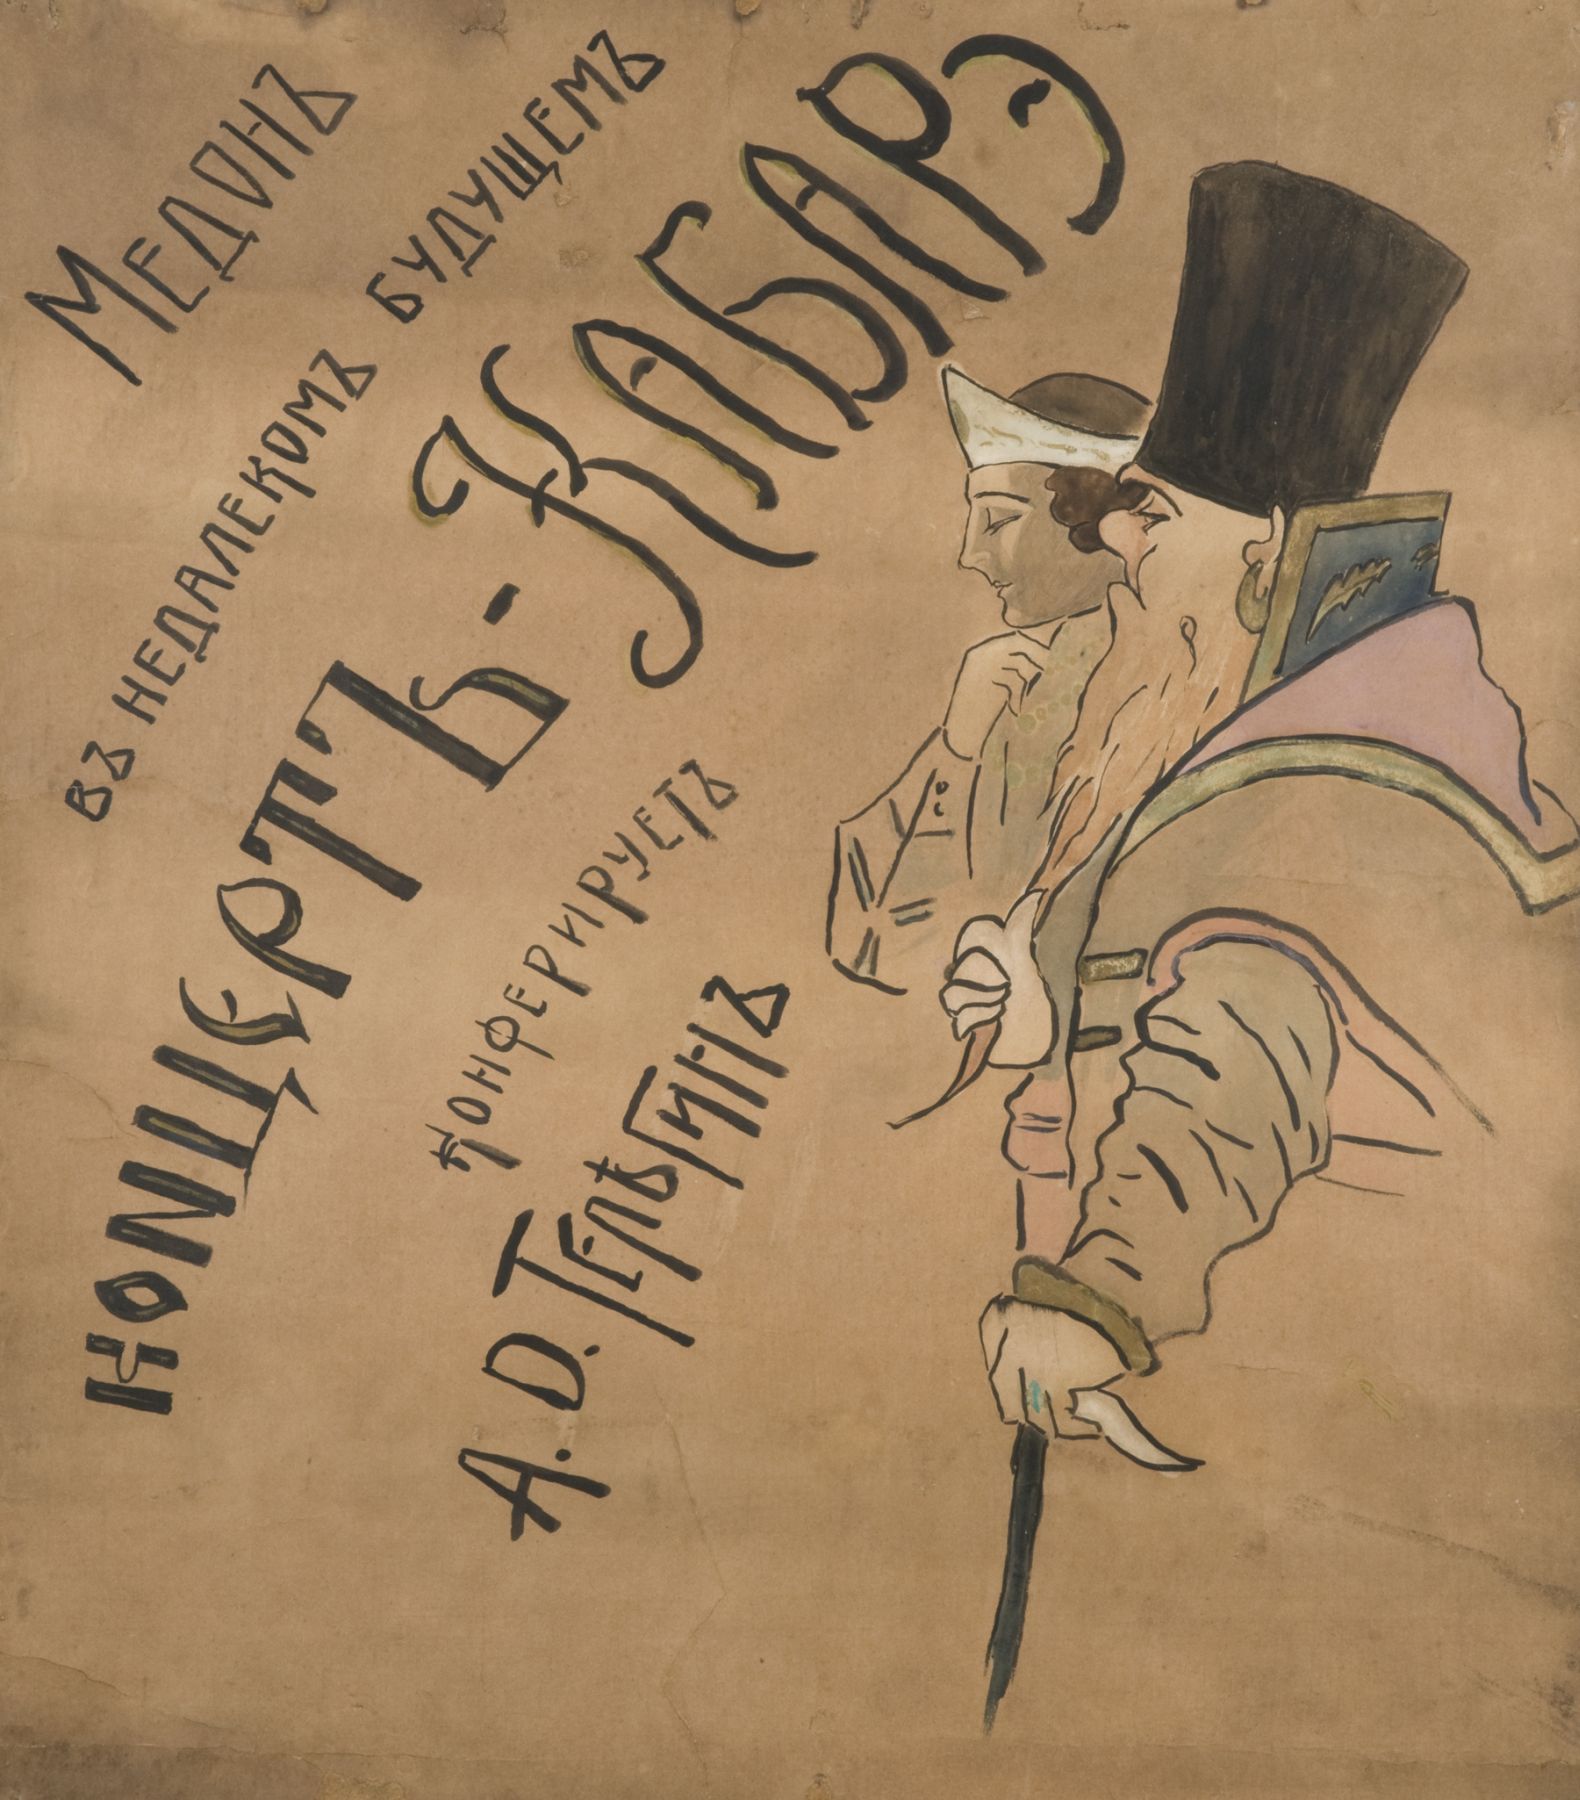 МЕДОНЪ
ВЪ НЕДАЛЕКОМЪ БУДУЩЕМЪ
КОНЦЕРТЪ-КАБАРЭ
КОНФЕРИРУЕТЪ
А. D. ТЕЛѢГИНЪ